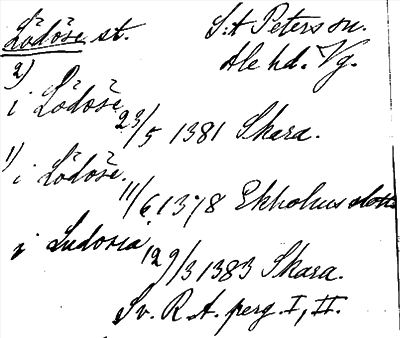 Lödöse, st. S:t Peters sn.
Ale hd. Vg.
2) i Lödöse 23/5 1381 Skara.
1) i Lödöse, 11/6 1378 Ekholms slott
i Ludosia, 29/3 1383 Skara.
Sv. R. A. perg. I, II.